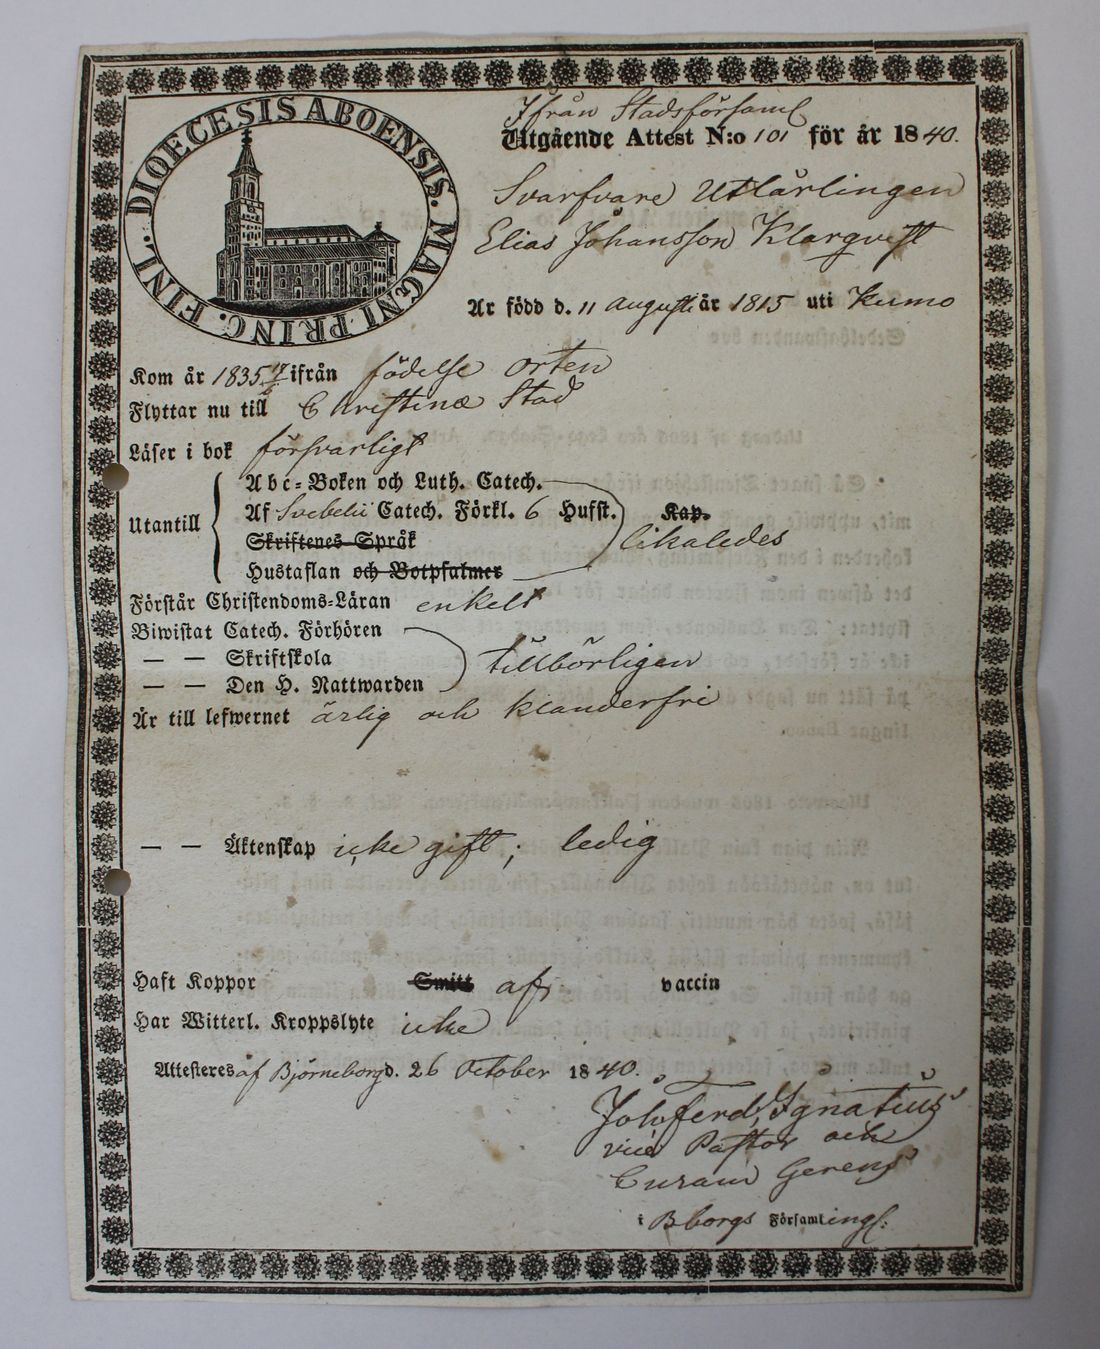 DIOECESIS ABOENSIS. MAGNI PRINC. FINL.
Ifrån Stadsförsaml
Utgående Attest N:o 101 för år 1840.
Svarfvare Utlärlingen
Elias Johansson Klarqvist
Är född d. 11 Augusti år 1815 uti Kumo
Kom år 1835 ifrån födelse orten
Flyttar nu till Christinæ Stad
Läser i bok försvarligt
Abc-Boken och Luth. Catech.
Utantill
Af Svebelii Catech. Förkl. 6 Hufst. Kap.
Skriftenes Språk
likaledes
Hustaflan och Botpsalmer
Förstår Christendoms-Läran enkelt
Biwistat Catech. Förhören
— — Skriftskola
tillbörligen
— — Den H. Nattwarden
Är till lefwernet ärlig och klanderfri
— — Äktenskap icke gift; ledig
Haft Koppor Smitt af vaccin
Har Witterl. Kroppslyte icke
Attesteres af Björneborg d. 26 October 1840.
Joh. Ferd. Ignatius
vice Pastor och
Curam Gerens
i Bborgs Församlings.